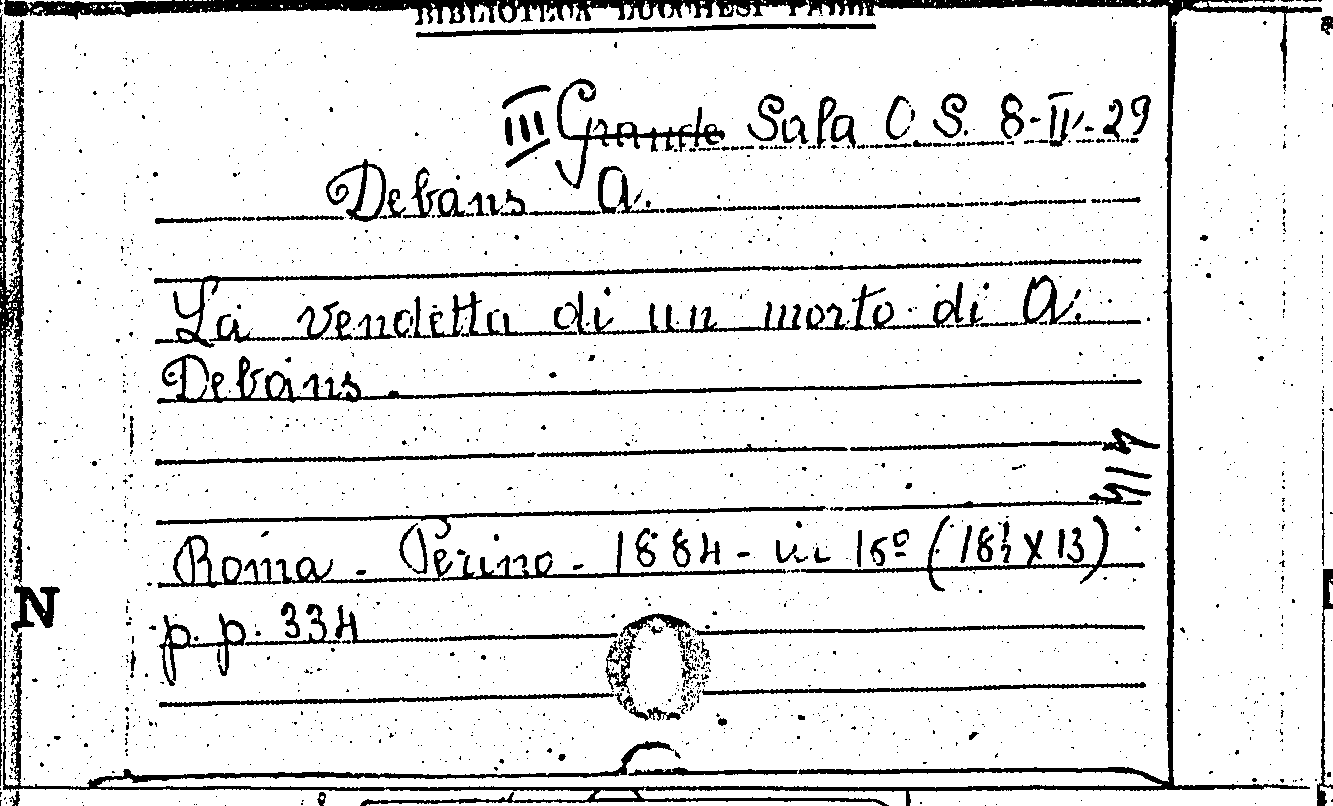 BIBLIOTECA LUCCHESI PALLI
III Grande Sala O. S. 8-IV-29
Debans A.
La vendetta di un morto di A.
Debans.
Roma - Perino - 1884 - in 16º (18½ X 13)
p. p. 334
N